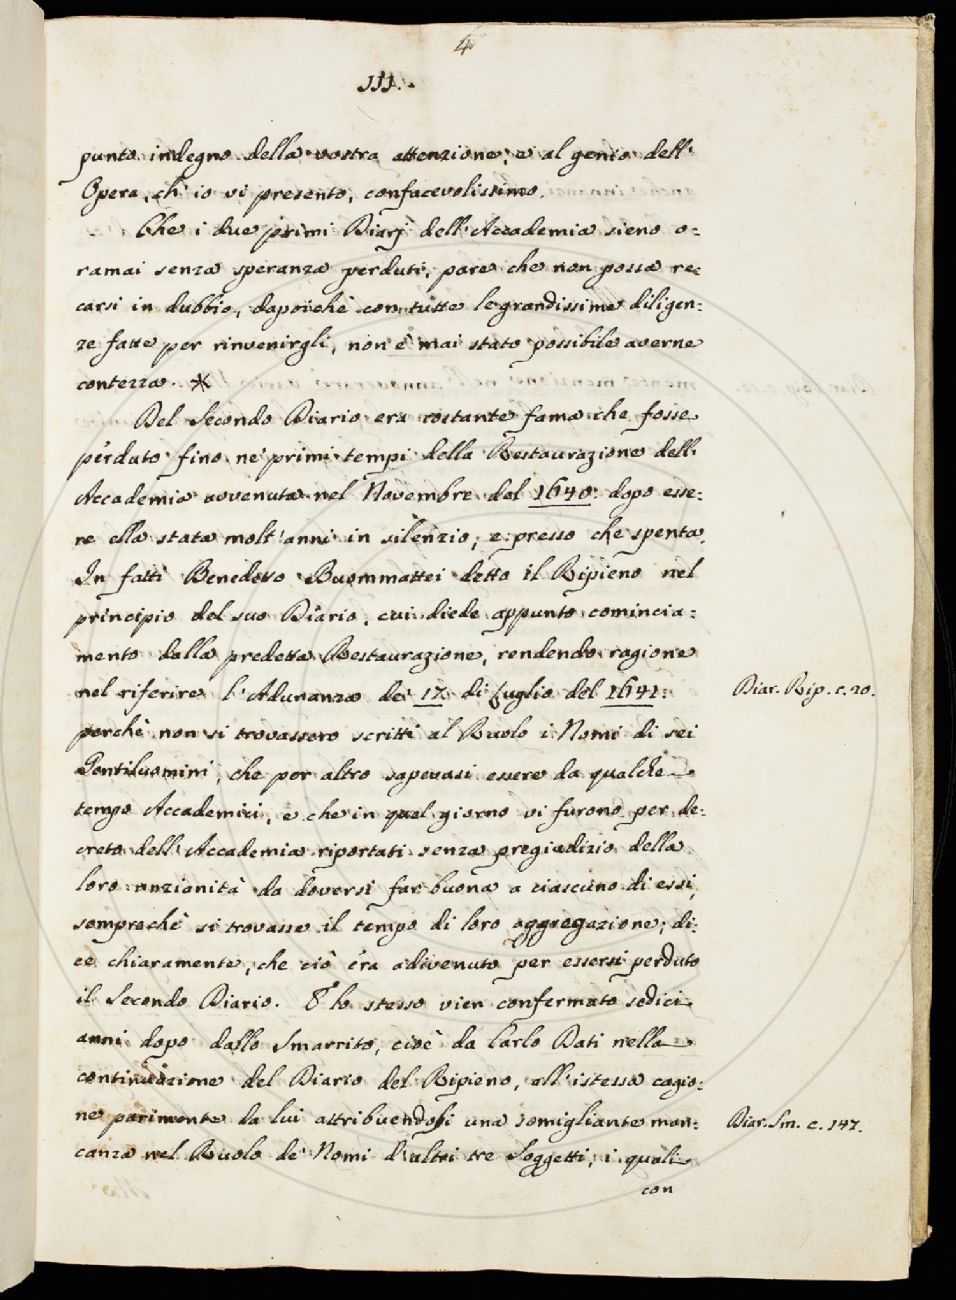 4
III.
punto indegno della vostra attenzione; e al genio dell'
Opera, ch' io vi presento, confacevolissimo.
Che i due primi Diarj dell'Accademia sieno o=
ramai senza speranza perduti, pare che non possa re=
carsi in dubbio, dapoichè con tutte le grandissime diligen=
ze fatte per rinvenirgli, non è mai stato possibile averne
contezza. *
Del Secondo Diario era costante fama che fosse
perduto fino ne' primi tempi della Restaurazione dell'
Accademia avvenuta nel Novembre del 1640: dopo esse=
re ella stata molt'anni in silenzio, e presso che spenta.
In fatti Benedetto Buommattei detto il Ripieno nel
principio del suo Diario, cui diede appunto comincia=
mento dalla predetta Restaurazione, rendendo ragione
nel riferire l'Adunanza de' 17. di Luglio del 1641:
perchè non si trovassero scritti al Ruolo i Nomi di sei
Gentiluomini, che per altro sapevasi essere da qualche
tempo Accademici, e che in quel giorno vi furono per de=
creto dell'Accademia riportati senza pregiudizio della
loro anzianità da doversi far buona a ciascuno di essi,
semprechè si trovasse il tempo di loro aggregazione; di=
ce chiaramente, che ciò era adivenuto per essersi perduto
il Secondo Diario. E lo stesso vien confermato sedici
anni dopo dallo Smarrito, cioè da Carlo Dati nella
continuazione del Diario del Ripieno, all'istessa cagio=
ne parimente da lui attribuendosi una somigliante man=
canza nel Ruolo de' Nomi d'altri tre Soggetti, i quali
con
Diar. Rip. c. 20.
Diar. Sm. c. 147.